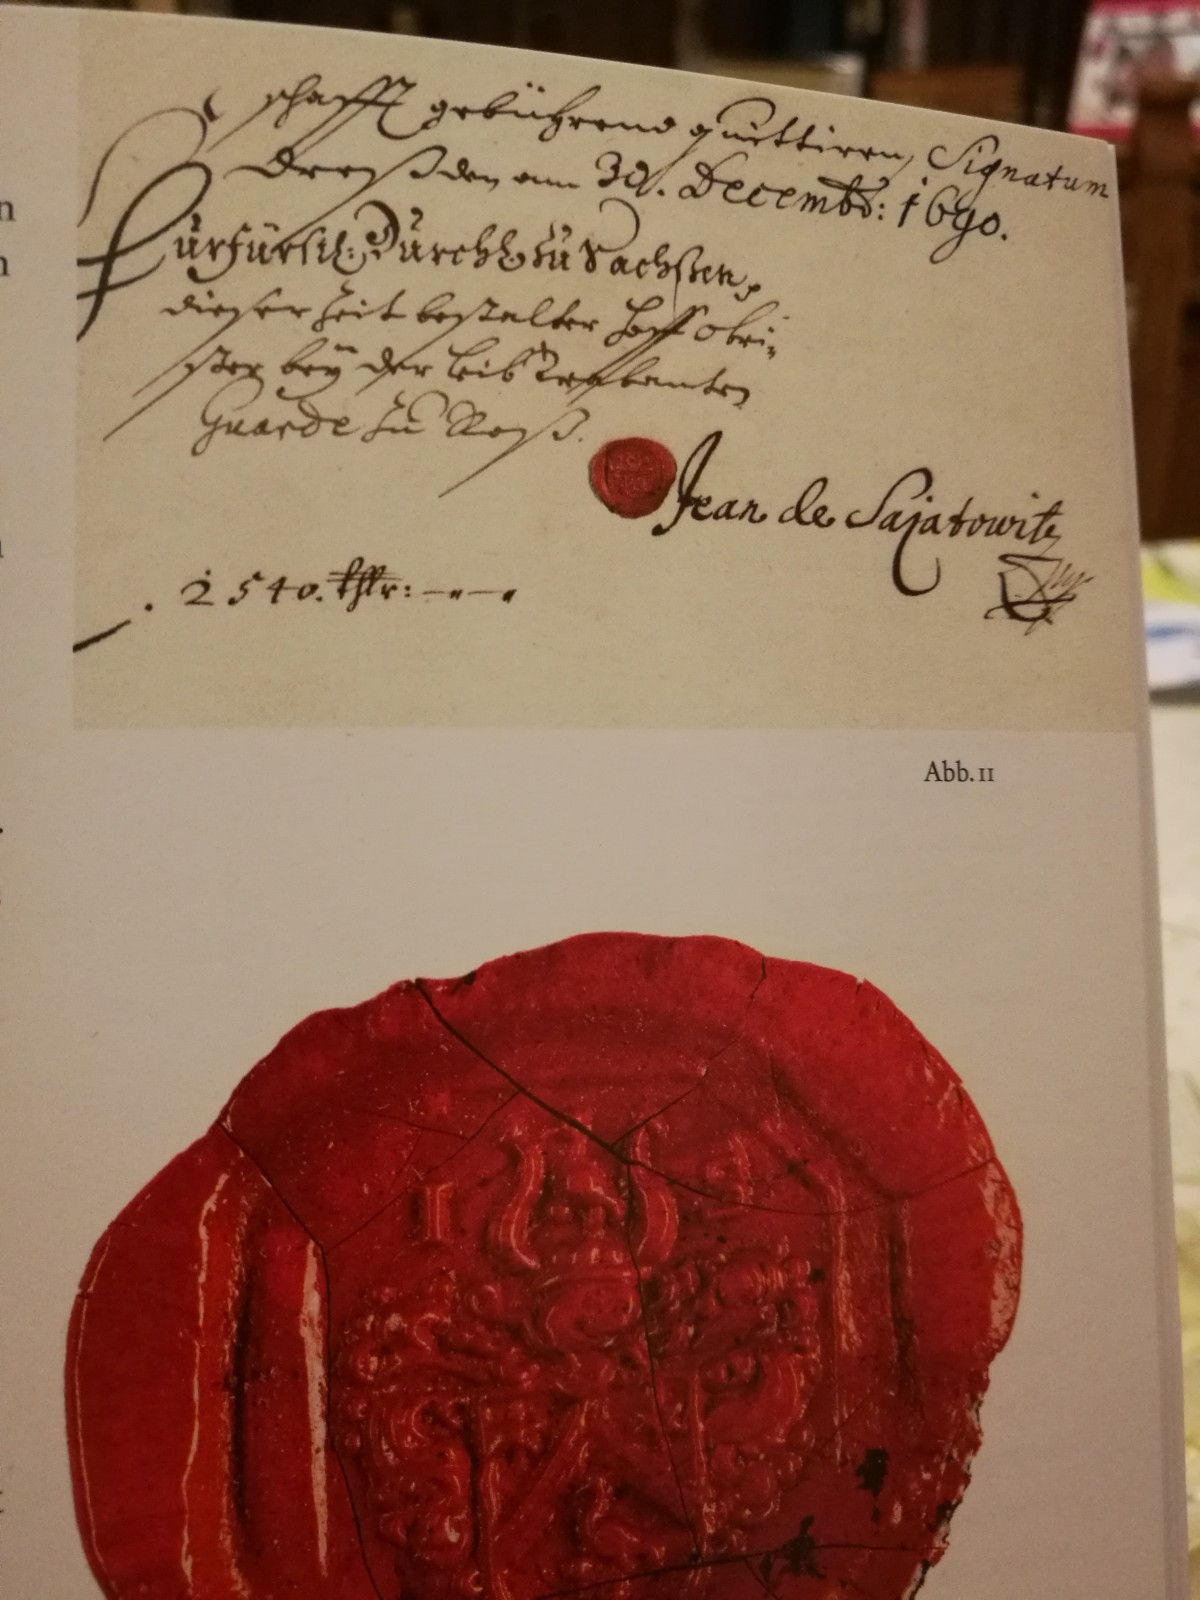 schafft gebührend quittiren, Signatum
Dreßden am 30. Decembr: 1690.
Churfürstl: Durchl: zu Sachßen,
dieser Zeit bestalter Hoff Obri-
ster bey der Leib Trabanten
Guarde zu Roß.
Jean de Sajatowitz
2540. thlr:
Abb. 11